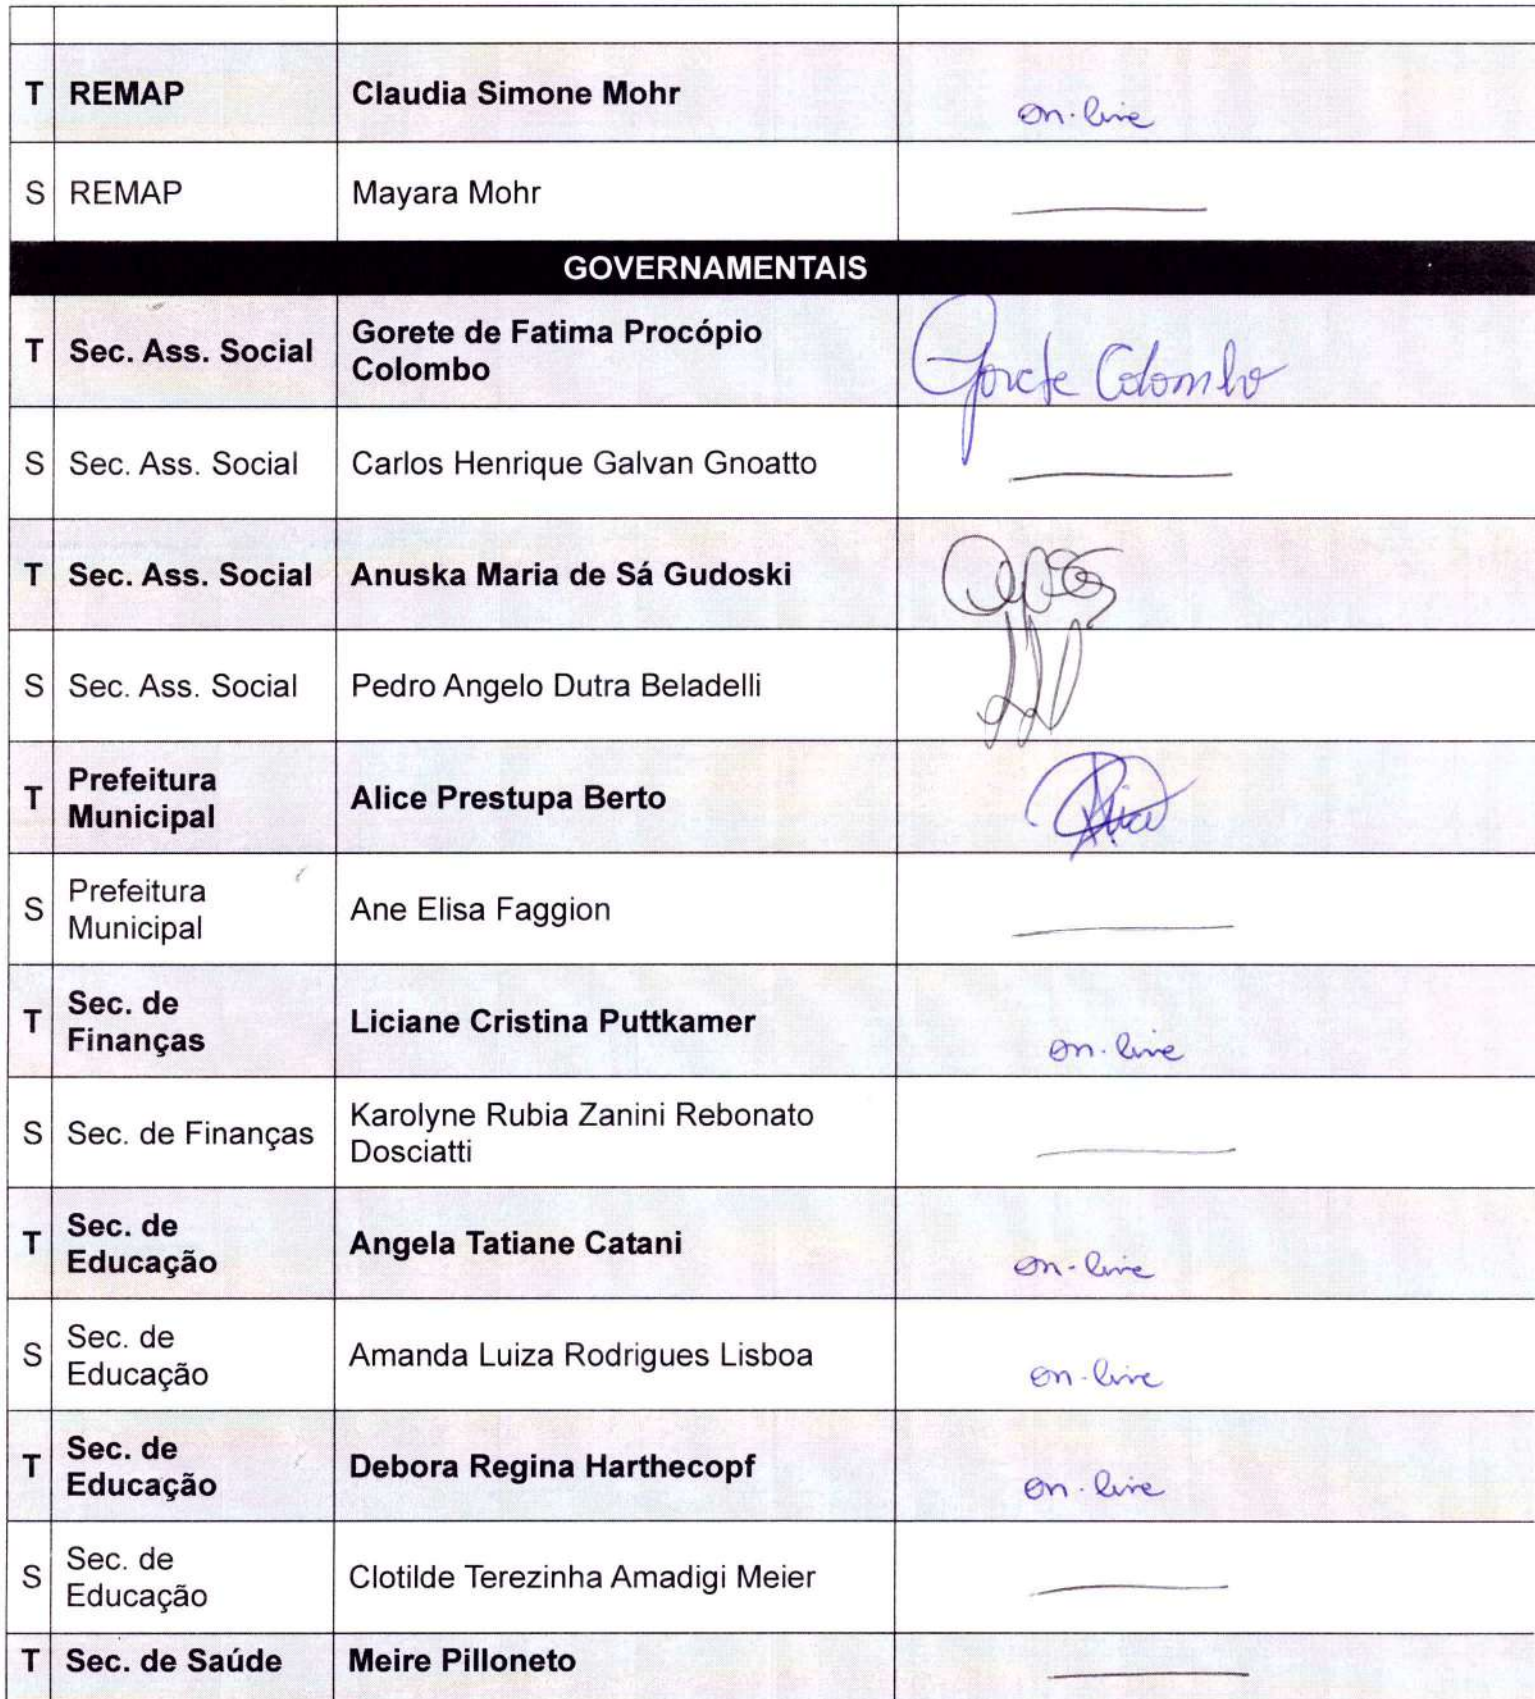 T REMAP Claudia Simone Mohr on-line
S REMAP Mayara Mohr
GOVERNAMENTAIS
T Sec. Ass. Social Gorete de Fatima Procópio
Colombo Gorete Colombo
S Sec. Ass. Social Carlos Henrique Galvan Gnoatto
T Sec. Ass. Social Anuska Maria de Sá Gudoski
S Sec. Ass. Social Pedro Angelo Dutra Beladelli
T Prefeitura
Municipal Alice Prestupa Berto Alice
S Prefeitura
Municipal Ane Elisa Faggion
T Sec. de
Finanças Liciane Cristina Puttkamer on-line
S Sec. de Finanças Karolyne Rubia Zanini Rebonato
Dosciatti
T Sec. de
Educação Angela Tatiane Catani on-line
S Sec. de
Educação Amanda Luiza Rodrigues Lisboa on-line
T Sec. de
Educação Debora Regina Harthecopf on-line
S Sec. de
Educação Clotilde Terezinha Amadigi Meier
T Sec. de Saúde Meire Pilloneto